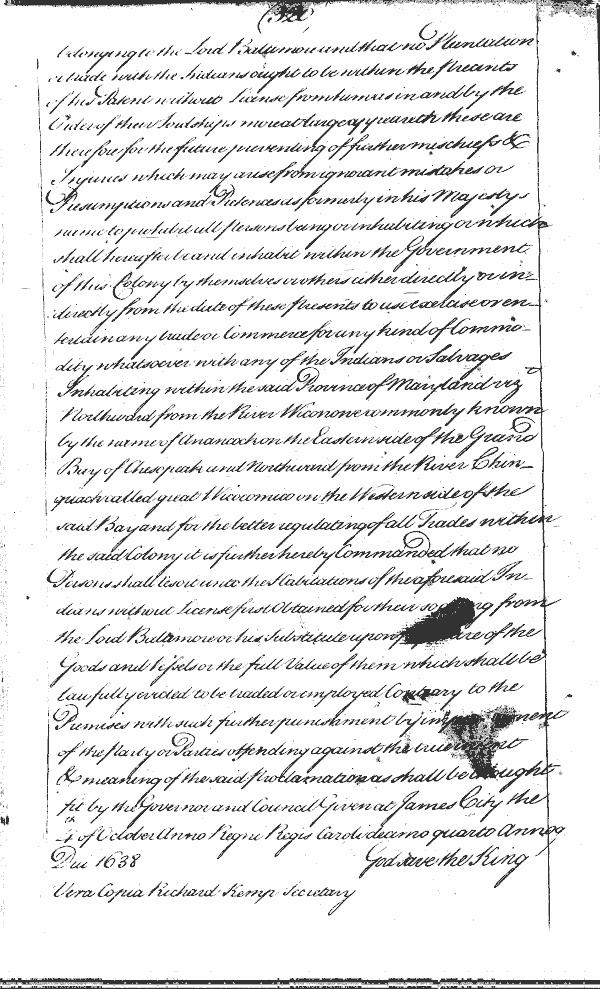 belonging to the Lord Baltamore and that no Plantation
or trade with the Indians ought to be within the Precints
of his Patent without License from him as in and by the
Order of their Lordships more at large appeareth these are
therefore for the future preventing of further mischiefs &
Injuries which may arise from ignorant mistakes or
Presumptions and Pretences as formerly in his Majestys
name to prohibit all Persons being or inhabiting or which
shall hereafter be and inhabit within the Government
of this Colony by themselves or others either directly or in=
directly from the date of these Presents to use exercise or en
tertain any trade or Commerce for any kind of Commo-
dity whatsoever with any of the Indians or Salvages
Inhabiting within the said Province of Maryland viz
Northward from the River Wiconowe commonly known
by the name of Anancock on the Eastern side of the Grand
Bay of Chesopeak and Northward from the River Chin_
quack called great Wiccomico on the Western side of the
said Bay and for the better regulating of all Trades within
the said Colony it is further hereby Commanded that no
Persons shall resort unto the Habitations of the aforesaid In_
dians without License first Obtained for their so from
the Lord Baltamore or his Substitute upon of the
Goods and Vessels or the full Value of them which shall be
lawfully evicted to be traded or employed Contrary to the
Premises with such further punishment by
of the Party or Parties offending against the true
& meaning of the said Proclamation as shall be thought
fit by the Governor and Council Given at James City the
4 of October Anno Regni Regis Caroli decimo quarto Annoq
Dni 1638 God save the King
Vera Copia Richard Kemp Secretary